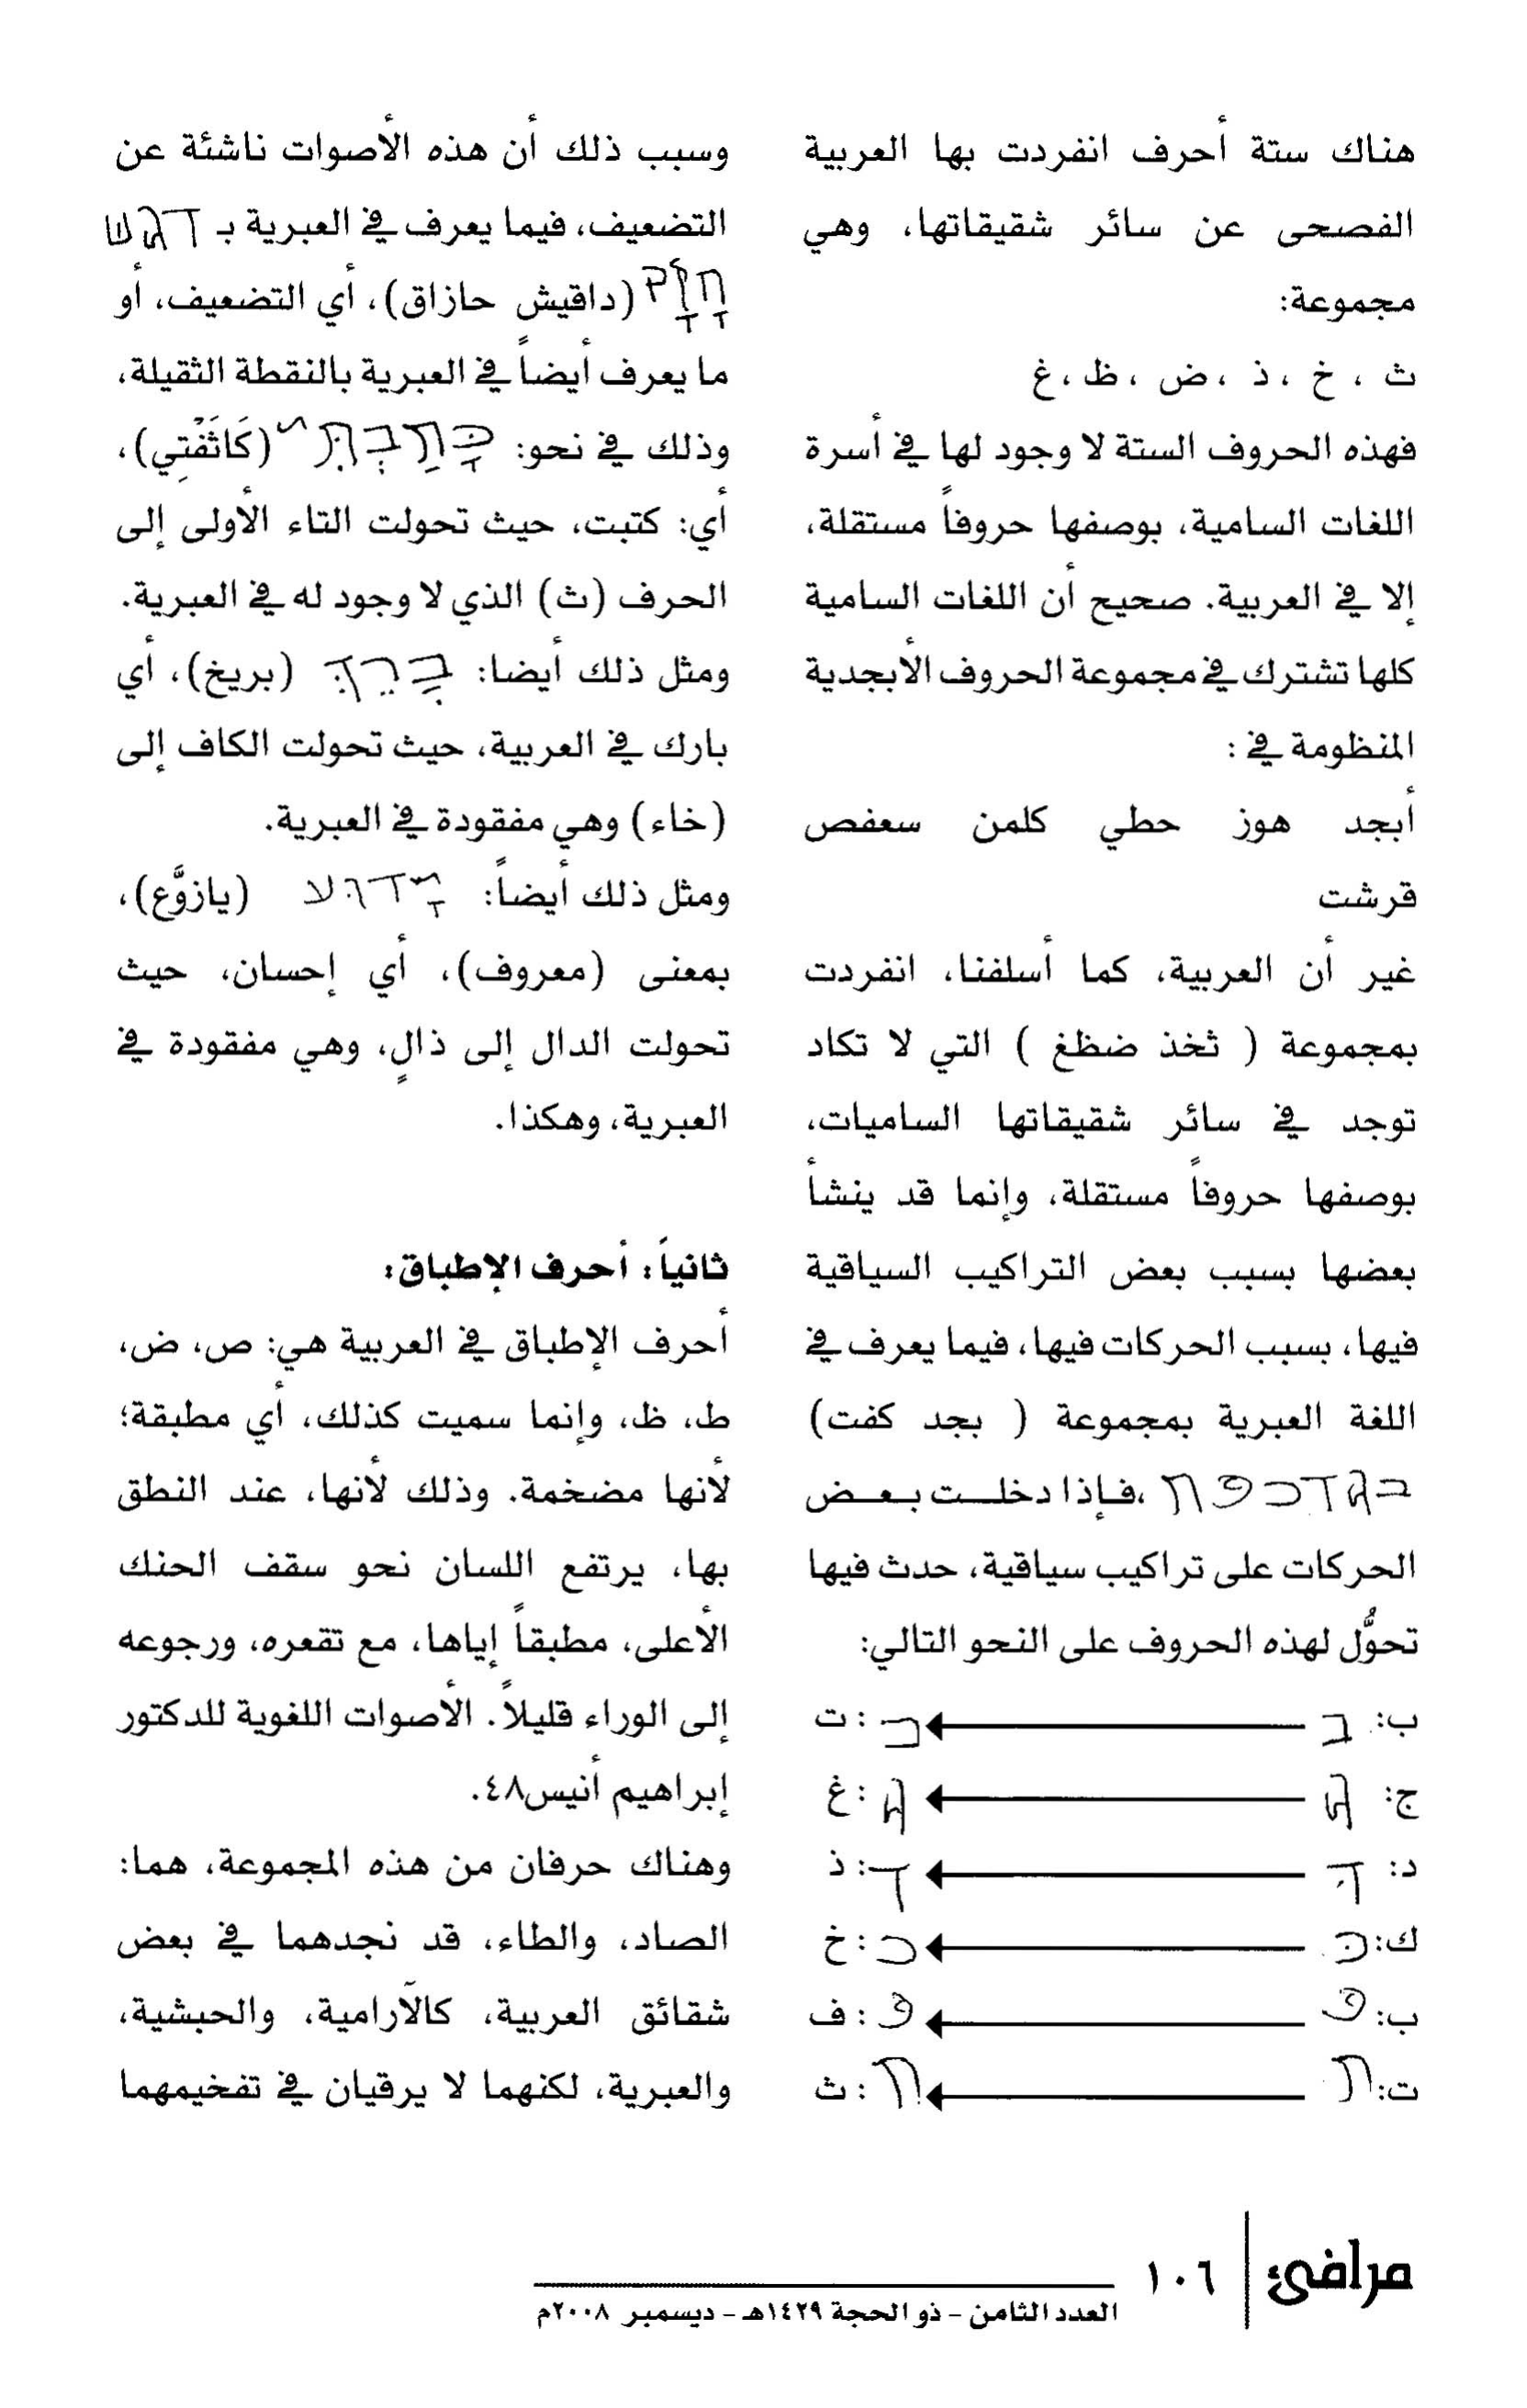 هناك ستة أحرف انفردت بها العربية
الفصحى عن سائر شقيقاتها، وهي
مجموعة:
ث ، خ ، ذ ، ض ، ظ ، غ
فهذه الحروف الستة لا وجود لها في أسرة
اللغات السامية، بوصفها حروفاً مستقلة،
إلا في العربية. صحيح أن اللغات السامية
كلها تشترك في مجموعة الحروف الأبجدية
المنظومة في :
أبجد هوز حطي كلمن سعفص
قرشت
غير أن العربية، كما أسلفنا، انفردت
بمجموعة ( ثخذ ضظغ ) التي لا تكاد
توجد في سائر شقيقاتها الساميات،
بوصفها حروفاً مستقلة، وإنما قد ينشأ
بعضها بسبب بعض التراكيب السياقية
فيها، بسبب الحركات فيها، فيما يعرف في
اللغة العبرية بمجموعة ( بجد كفت)
בגדכפת ،فإذا دخلت بعض
الحركات على تراكيب سياقية، حدث فيها
تحوُّل لهذه الحروف على النحو التالي:
ب: ב ← ב : ت
ج: ג ← ג : غ
د: ד ← ד : ذ
ك: כּ ← כ : خ
ب: פ ← פ : ف
ت: ת ← ת : ث
وسبب ذلك أن هذه الأصوات ناشئة عن
التضعيف، فيما يعرف في العبرية بـ דגש
חָזָק (داقيش حازاق)، أي التضعيف، أو
ما يعرف أيضاً في العبرية بالنقطة الثقيلة،
وذلك في نحو: (كَاثَفْتِي)،
أي: كتبت، حيث تحولت التاء الأولى إلى
الحرف (ث) الذي لا وجود له في العبرية.
ومثل ذلك أيضا: (بريخ)، أي
بارك في العبرية، حيث تحولت الكاف إلى
(خاء) وهي مفقودة في العبرية.
ومثل ذلك أيضاً: (يازوَّع)،
بمعنى (معروف)، أي إحسان، حيث
تحولت الدال إلى ذالٍ، وهي مفقودة في
العبرية، وهكذا.
ثانياً: أحرف الإطباق:
أحرف الإطباق في العربية هي: ص، ض،
ط، ظ، وإنما سميت كذلك، أي مطبقة؛
لأنها مضخمة. وذلك لأنها، عند النطق
بها، يرتفع اللسان نحو سقف الحنك
الأعلى، مطبقاً إياها، مع تقعره، ورجوعه
إلى الوراء قليلاً. الأصوات اللغوية للدكتور
إبراهيم أنيس٤٨.
وهناك حرفان من هذه المجموعة، هما:
الصاد، والطاء، قد نجدهما في بعض
شقائق العربية، كالآرامية، والحبشية،
والعبرية، لكنهما لا يرقيان في تفخيمهما
مرافئ ١٠٦
العدد الثامن - ذو الحجة ١٤٢٩هـ - ديسمبر ٢٠٠٨م